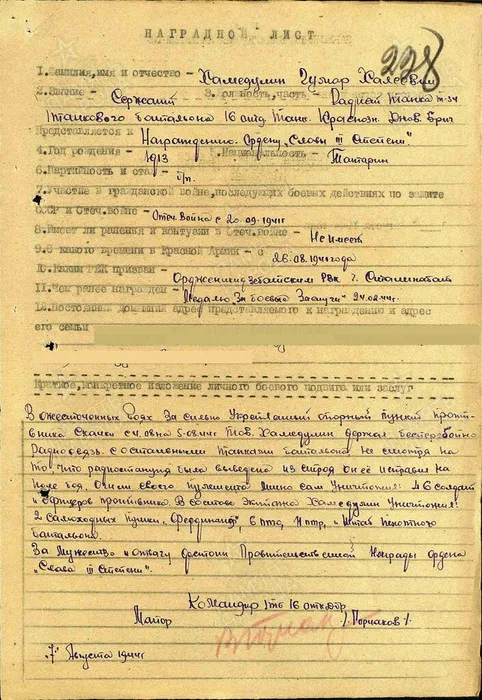 НАГРАДНОЙ ЛИСТ
228
1. Фамилия, имя и отчество - Хамедулин Гумар Халеевич
2. Звание - Сержант 3. Должность, часть - Радист Танка Т-34
Танкового батальона 16 отд. Танк. Краснозн. Днов Бриг
Представляется к Награждению Ордену "Славы III Степени"
4. Год рождения - 1913 5. Национальность - Татарин
6. Партийность и стаж - б/п.
7. Участие в гражданской войне, последующих боевых действиях по защите
СССР и Отеч. войне - Отеч. война с 20.09.1941г
8. Имеет ли ранения и контузии в Отеч. войне - Не имеет
9. С какого времени в Красной Армии - с 26.08.1941года
10. Каким РВК призван - Орджоникидзевским РВК г. Сталинабад
11. Чем ранее награжден - Медалью "За боевые Заслуги" 24.02.44г.
12. Постоянный домашний адрес представляемого к награждению и адрес
его семьи
Краткое, конкретное изложение личного боевого подвига или заслуг
В ожесточенных боях за сильно Укрепленый опорный пункт проти-
вника Скачки с 4.08 на 5-08.44г Тов. Хамедулин держал бесперебойно
Радиосвязь с остальными танками батальона не смотря на
то, что радиостанция была выведена из строя он её исправил на
поле боя. Огнем своего пулемета лично сам Уничтожил: 46 солдат
и офицеров противника. В составе экипажа Хамедулин Уничтожил:
2 самоходных пушки "Фердинант" 6 птр, 11 птр, и Штаб пехотного
батальона.
За мужество и отвагу достоин Правительственной Награды ордена
"Слава III степени".
Командир 1тб 16 отктбр
Майор /Порчаков/.
"7" Августа 1944г